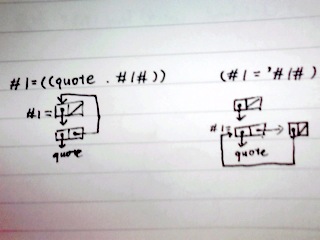 #1=((quote . #1#))
(#1='#1#)
#1=
#1=
quote
quote